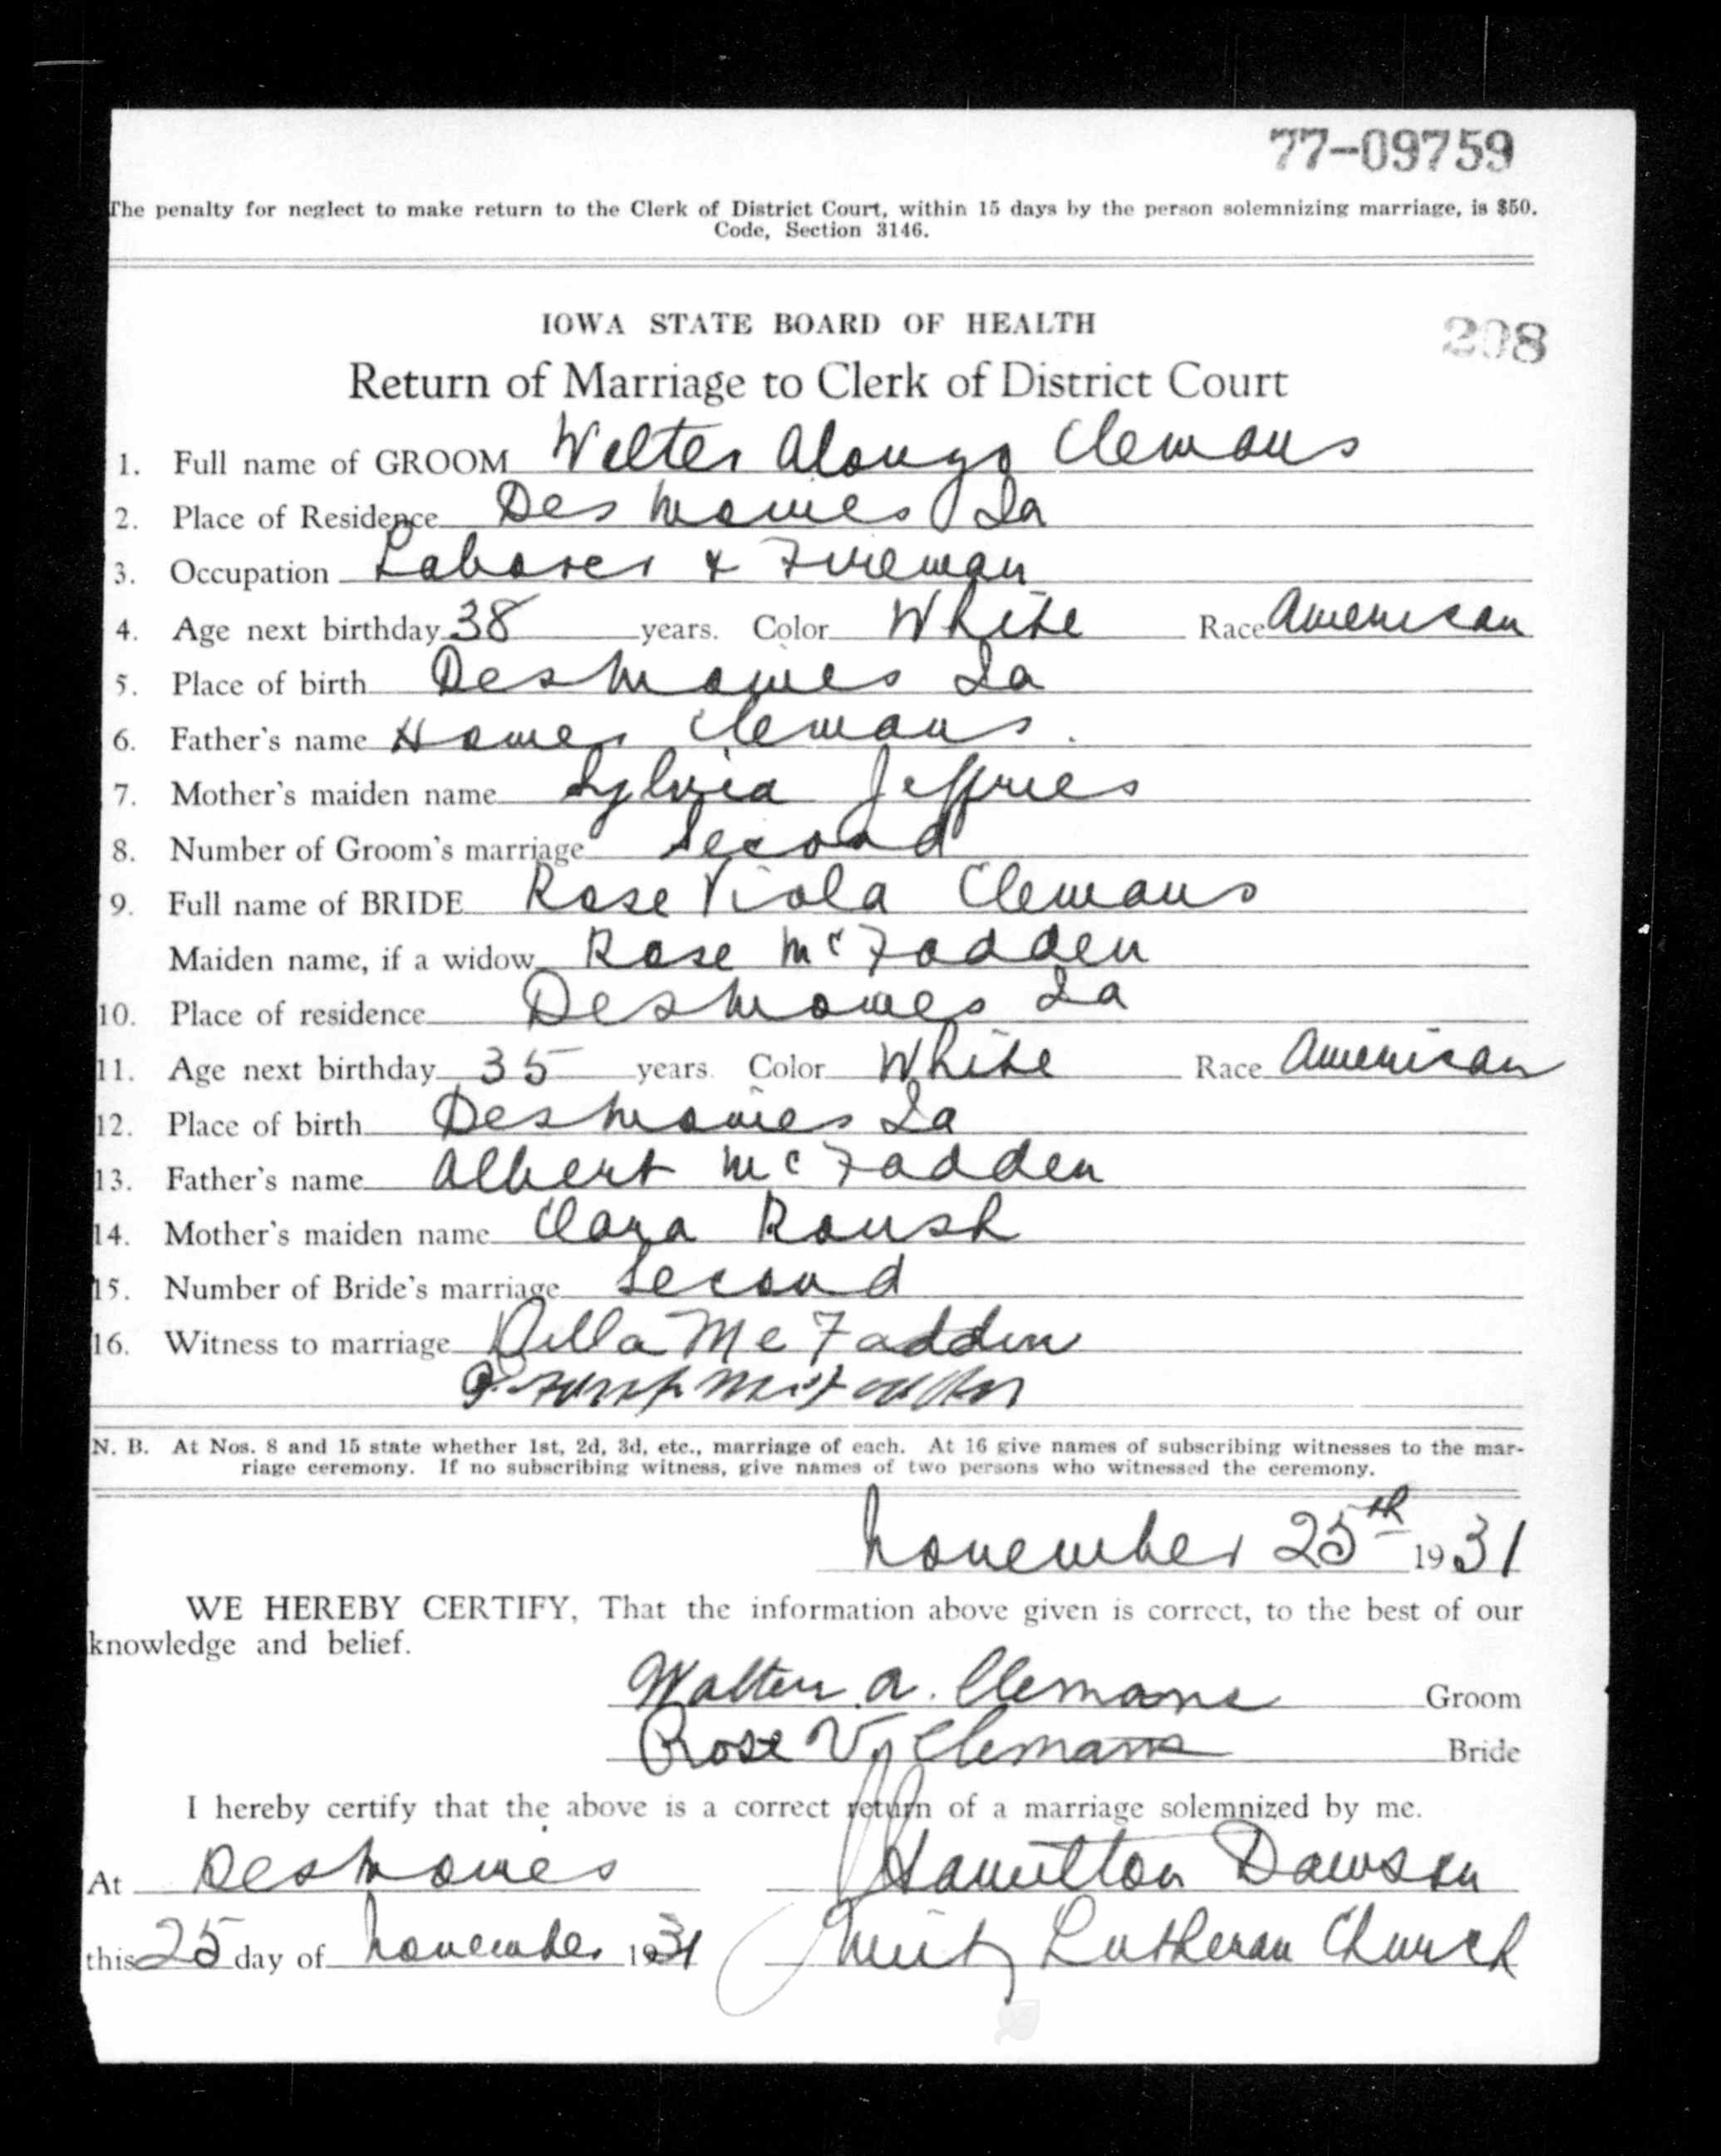 77-09759
The penalty for neglect to make return to the Clerk of District Court, within 15 days by the person solemnizing marriage, is $50.
Code, Section 3146.
IOWA STATE BOARD OF HEALTH
208
Return of Marriage to Clerk of District Court
1. Full name of GROOM Walter Alonzo Clemans
2. Place of Residence Des Moines Ia
3. Occupation Laborer & Fireman
4. Age next birthday 38 years. Color White Race American
5. Place of birth Des Moines Ia
6. Father's name Homer Clemans.
7. Mother's maiden name Sylvia Jeffries
8. Number of Groom's marriage Second
9. Full name of BRIDE Rose Viola Clemans
Maiden name, if a widow Rose McFadden
10. Place of residence Des Moines Ia
11. Age next birthday 35 years. Color White Race American
12. Place of birth Des Moines Ia
13. Father's name Albert McFadden
14. Mother's maiden name Clara Roush
15. Number of Bride's marriage Second
16. Witness to marriage Della McFadden
N. B. At Nos. 8 and 15 state whether 1st, 2d, 3d, etc., marriage of each. At 16 give names of subscribing witnesses to the mar-
riage ceremony. If no subscribing witness, give names of two persons who witnessed the ceremony.
November 25th 1931
WE HEREBY CERTIFY, That the information above given is correct, to the best of our
knowledge and belief.
Walter A. Clemans Groom
Rose V. Clemans Bride
I hereby certify that the above is a correct return of a marriage solemnized by me.
At Des Moines Hamilton Dawson
this 25 day of November 1931 Unity Lutheran Church